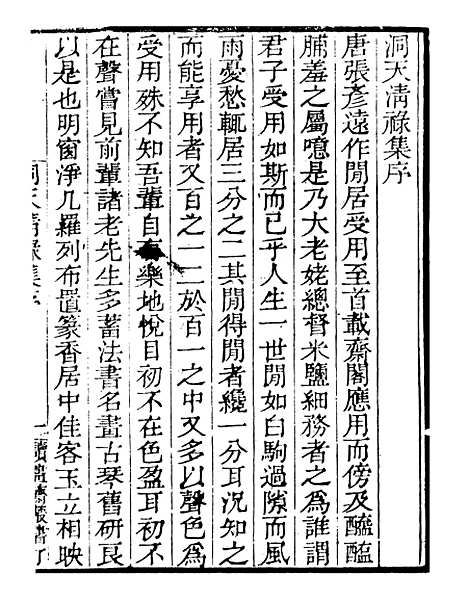 洞天清祿集序
唐張彥遠作閒居受用至首載齋閣應用而傍及醯醢
脯羞之屬噫是乃大老姥總督米鹽細務者之為誰謂
君子受用如斯而已乎人生一世閒如白駒過隙而風
雨憂愁輒居三分之二其閒得閒者纔一分耳況知之
而能享用者又百之一二於百一之中又多以聲色為
受用殊不知吾輩自有樂地悅目初不在色盈耳初不
在聲嘗見前輩諸老先生多蓄法書名畫古琴舊研良
以是也明窗淨几羅列布置篆香居中佳客玉立相映
洞天清祿集序
一
讀畫齋叢書丁